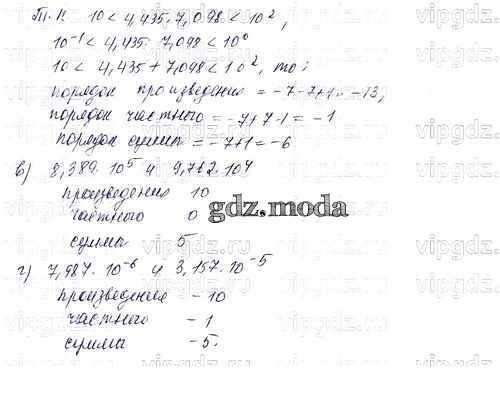 Т.к. 10 < 4,435 · 7,098 < 10²,
10⁻¹ < 4,435 : 7,098 < 10⁰
10 < 4,435 + 7,098 < 10², то:
порядок произведения = -7-7+1 = -13,
порядок частного = -7+7-1 = -1
порядок суммы = -7+1 = -6
в) 8,389 · 10⁵ и 9,762 · 10⁴
произведения 10
частного 0
суммы 5
г) 7,987 · 10⁻⁶ и 3,157 · 10⁻⁵
произведения - 10
частного - 1
суммы - 5.
gdz.moda
vipgdz.ru